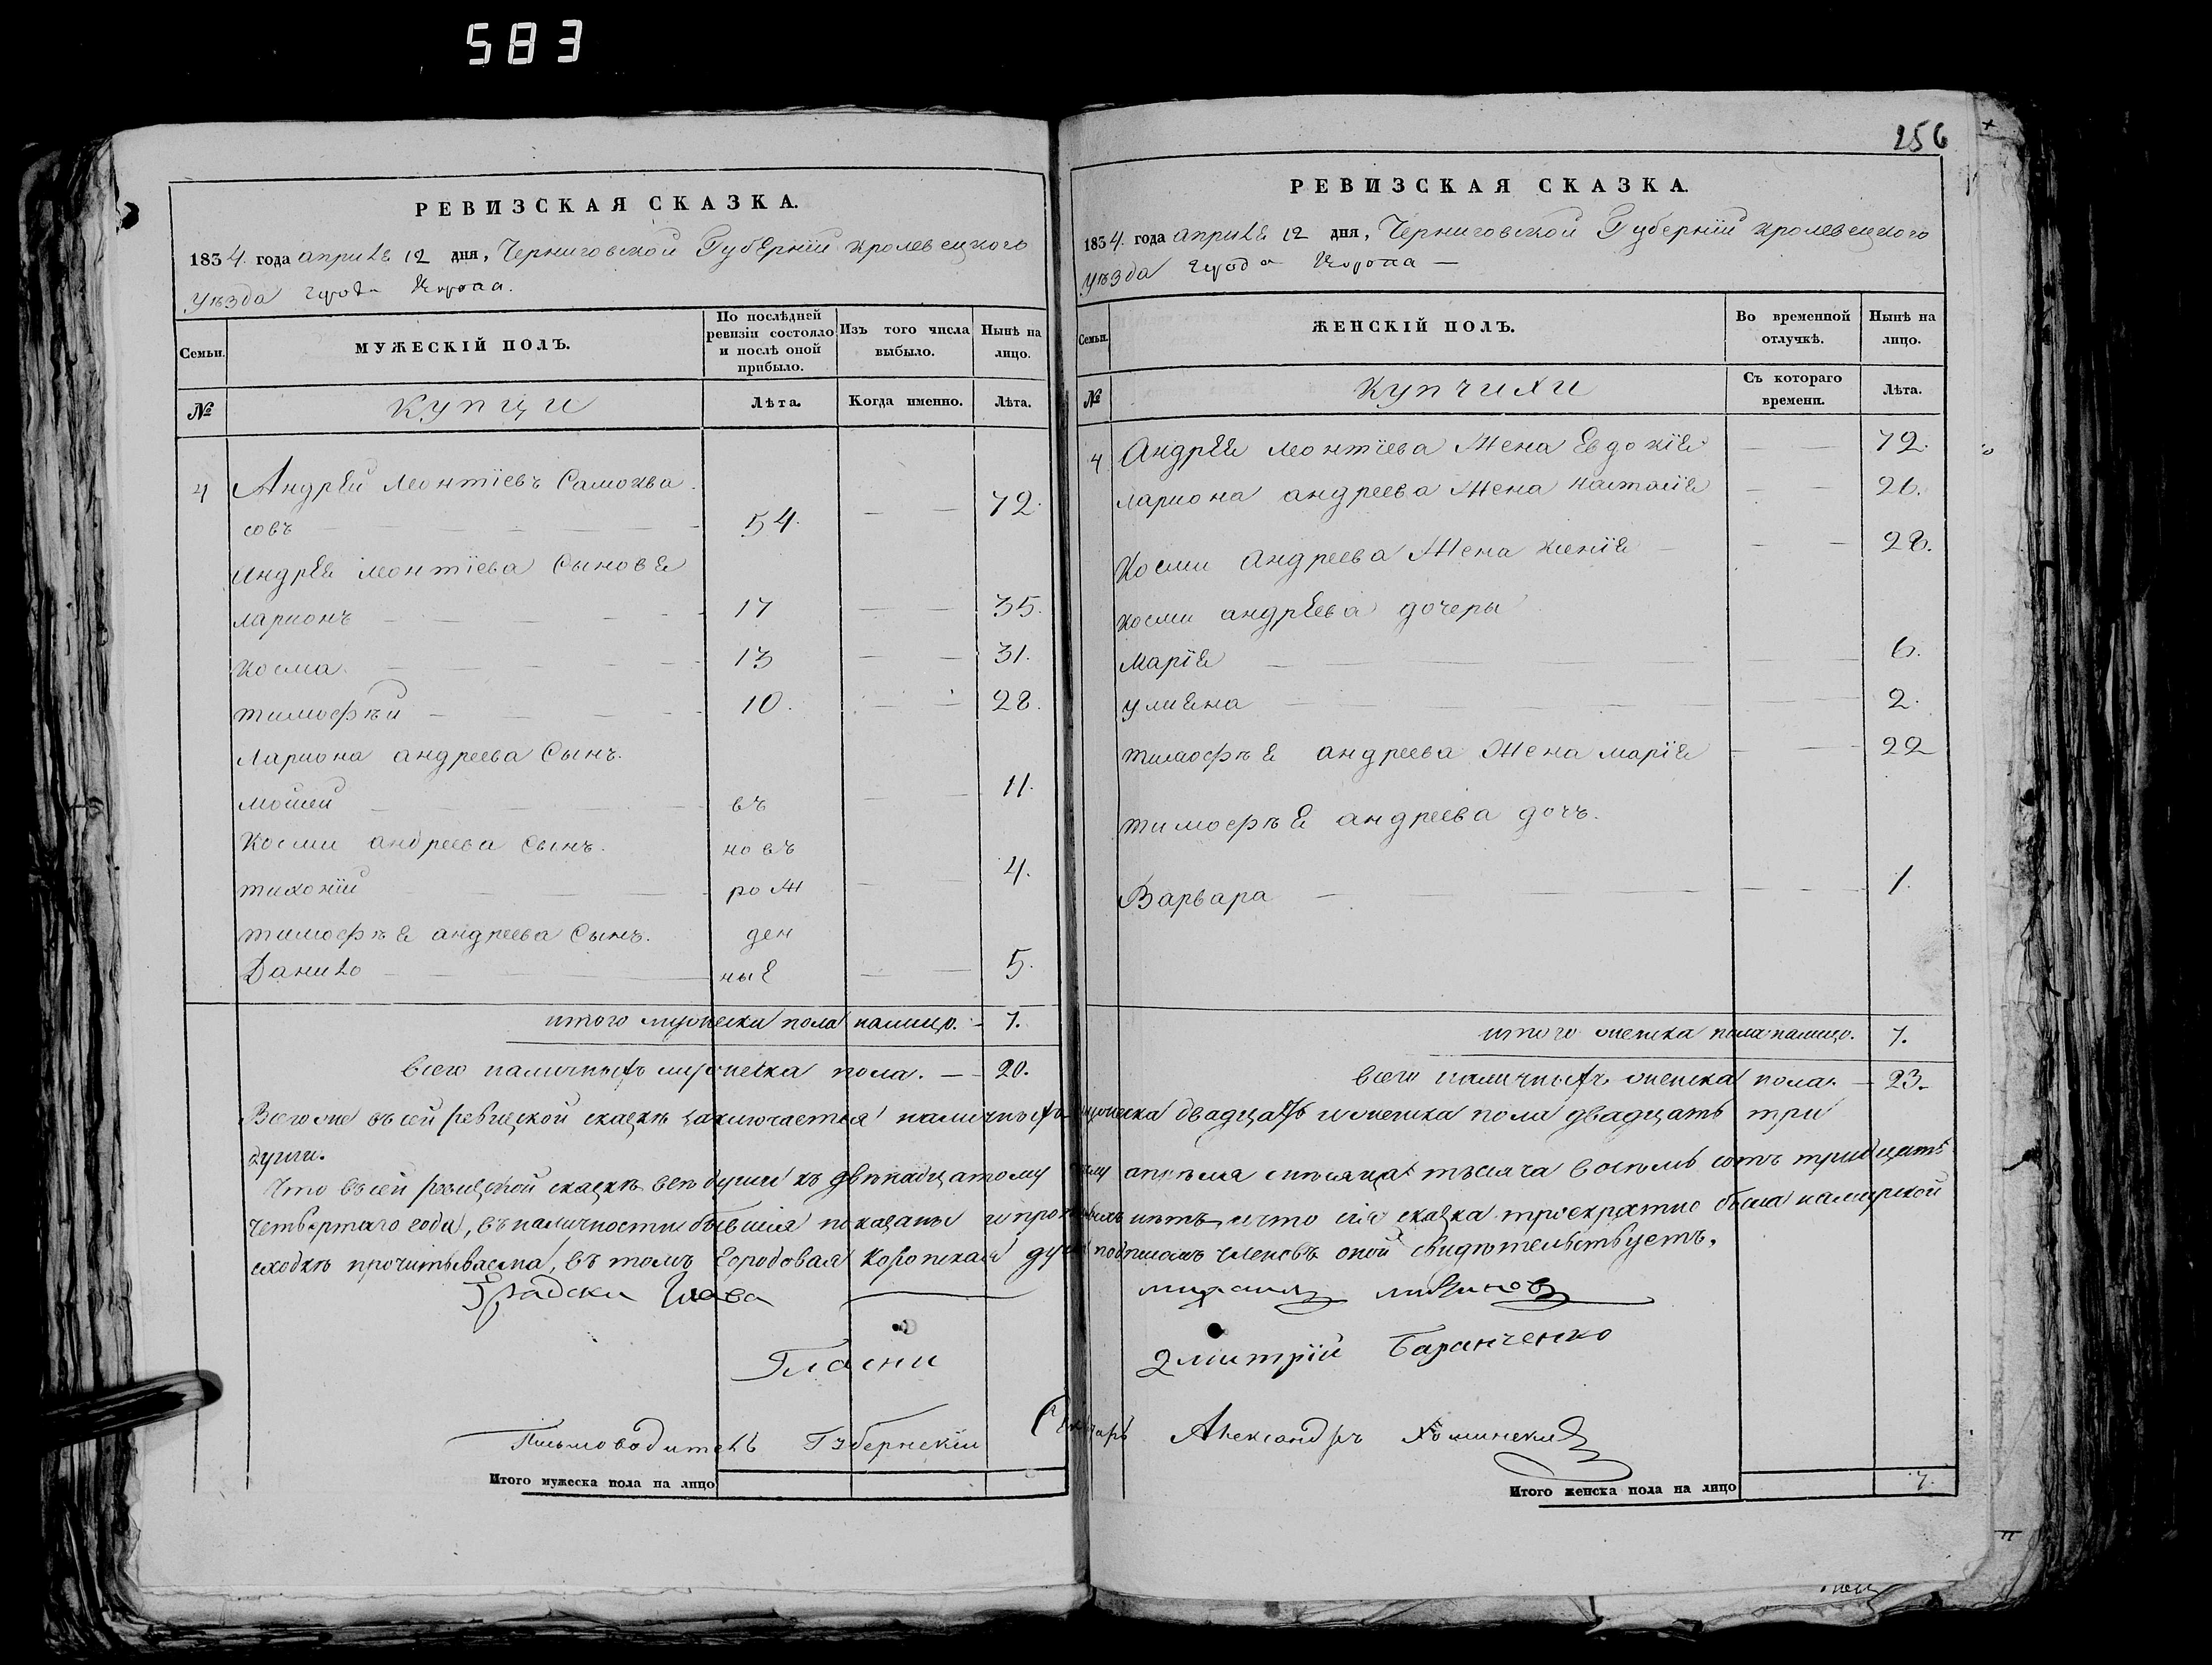 583
256
РЕВИЗСКАЯ СКАЗКА.
1834. года апреля 12 дня, Черниговской Губернїи кролевецкого
уѣзда города Коропа.
Семьи.
МУЖЕСКІЙ ПОЛЪ.
По послѣдней ревизіи состояло и послѣ оной прибыло.
Изъ того числа выбыло.
Нынѣ на лицо.
№
купци
Лѣта.
Когда именно.
Лѣта.
4 Андрей Леонтїевъ Самоква
совъ 54. 72.
Андрея Леонтїева Сыновя
ларионъ 17 35.
косма. 13 31.
тимофѣй 10. 28.
Лариона андреева Сынъ.
мойсей въ 11.
Косми андреева Сынъ. новъ
тихонїй рож 4.
тимофѣя андреева Сынъ. ден
Данило ные 5.
итого мужеска пола налицо. 7.
всего наличныхъ мужеска пола. 20.
РЕВИЗСКАЯ СКАЗКА.
1834. года апреля 12 дня, Черниговской Губернїи кролевецкого
уѣзда города Коропа
Семьи.
ЖЕНСКІЙ ПОЛЪ.
Во временной отлучкѣ.
Нынѣ на лицо.
№
купчихи
Съ котораго времени.
Лѣта.
4 Андрея Леонтїева Жена Евдокїя 72.
лариона андреева Жена Настасїя 26.
Косми Андреева Жена ксенїя 28.
косми андреева дочеры
марїя 6.
улияна 2.
тимофѣя андреева Жена марїя 22
тимофѣя андреева дочъ.
Варвара 1.
итого женска пола налицо. 7.
всего наличныхъ женска пола. 23.
Всего же въ сей ревизской сказкѣ заключается наличныхъ мужеска двадцать и женска пола двадцать три
души.
Что въ сей ревизской сказкѣ всѣ души къ двѣнадцатому апреля мѣсяца тысяча восемь сотъ тридцать
четвертаго года, въ наличности бывшія показаны и нѣтъ и что сія сказка троекратно была на мирской
сходкѣ прочитываема, въ томъ Городовая Коропская дума подписомъ членовъ оной свидѣтельствуетъ.
Градски Глава
Гласни Дмитрїй Баранченко
Письмоводитель Губернскїй Секретарь Александръ Хоминскій
Итого мужеска пола на лицо
Итого женска пола на лицо 7.